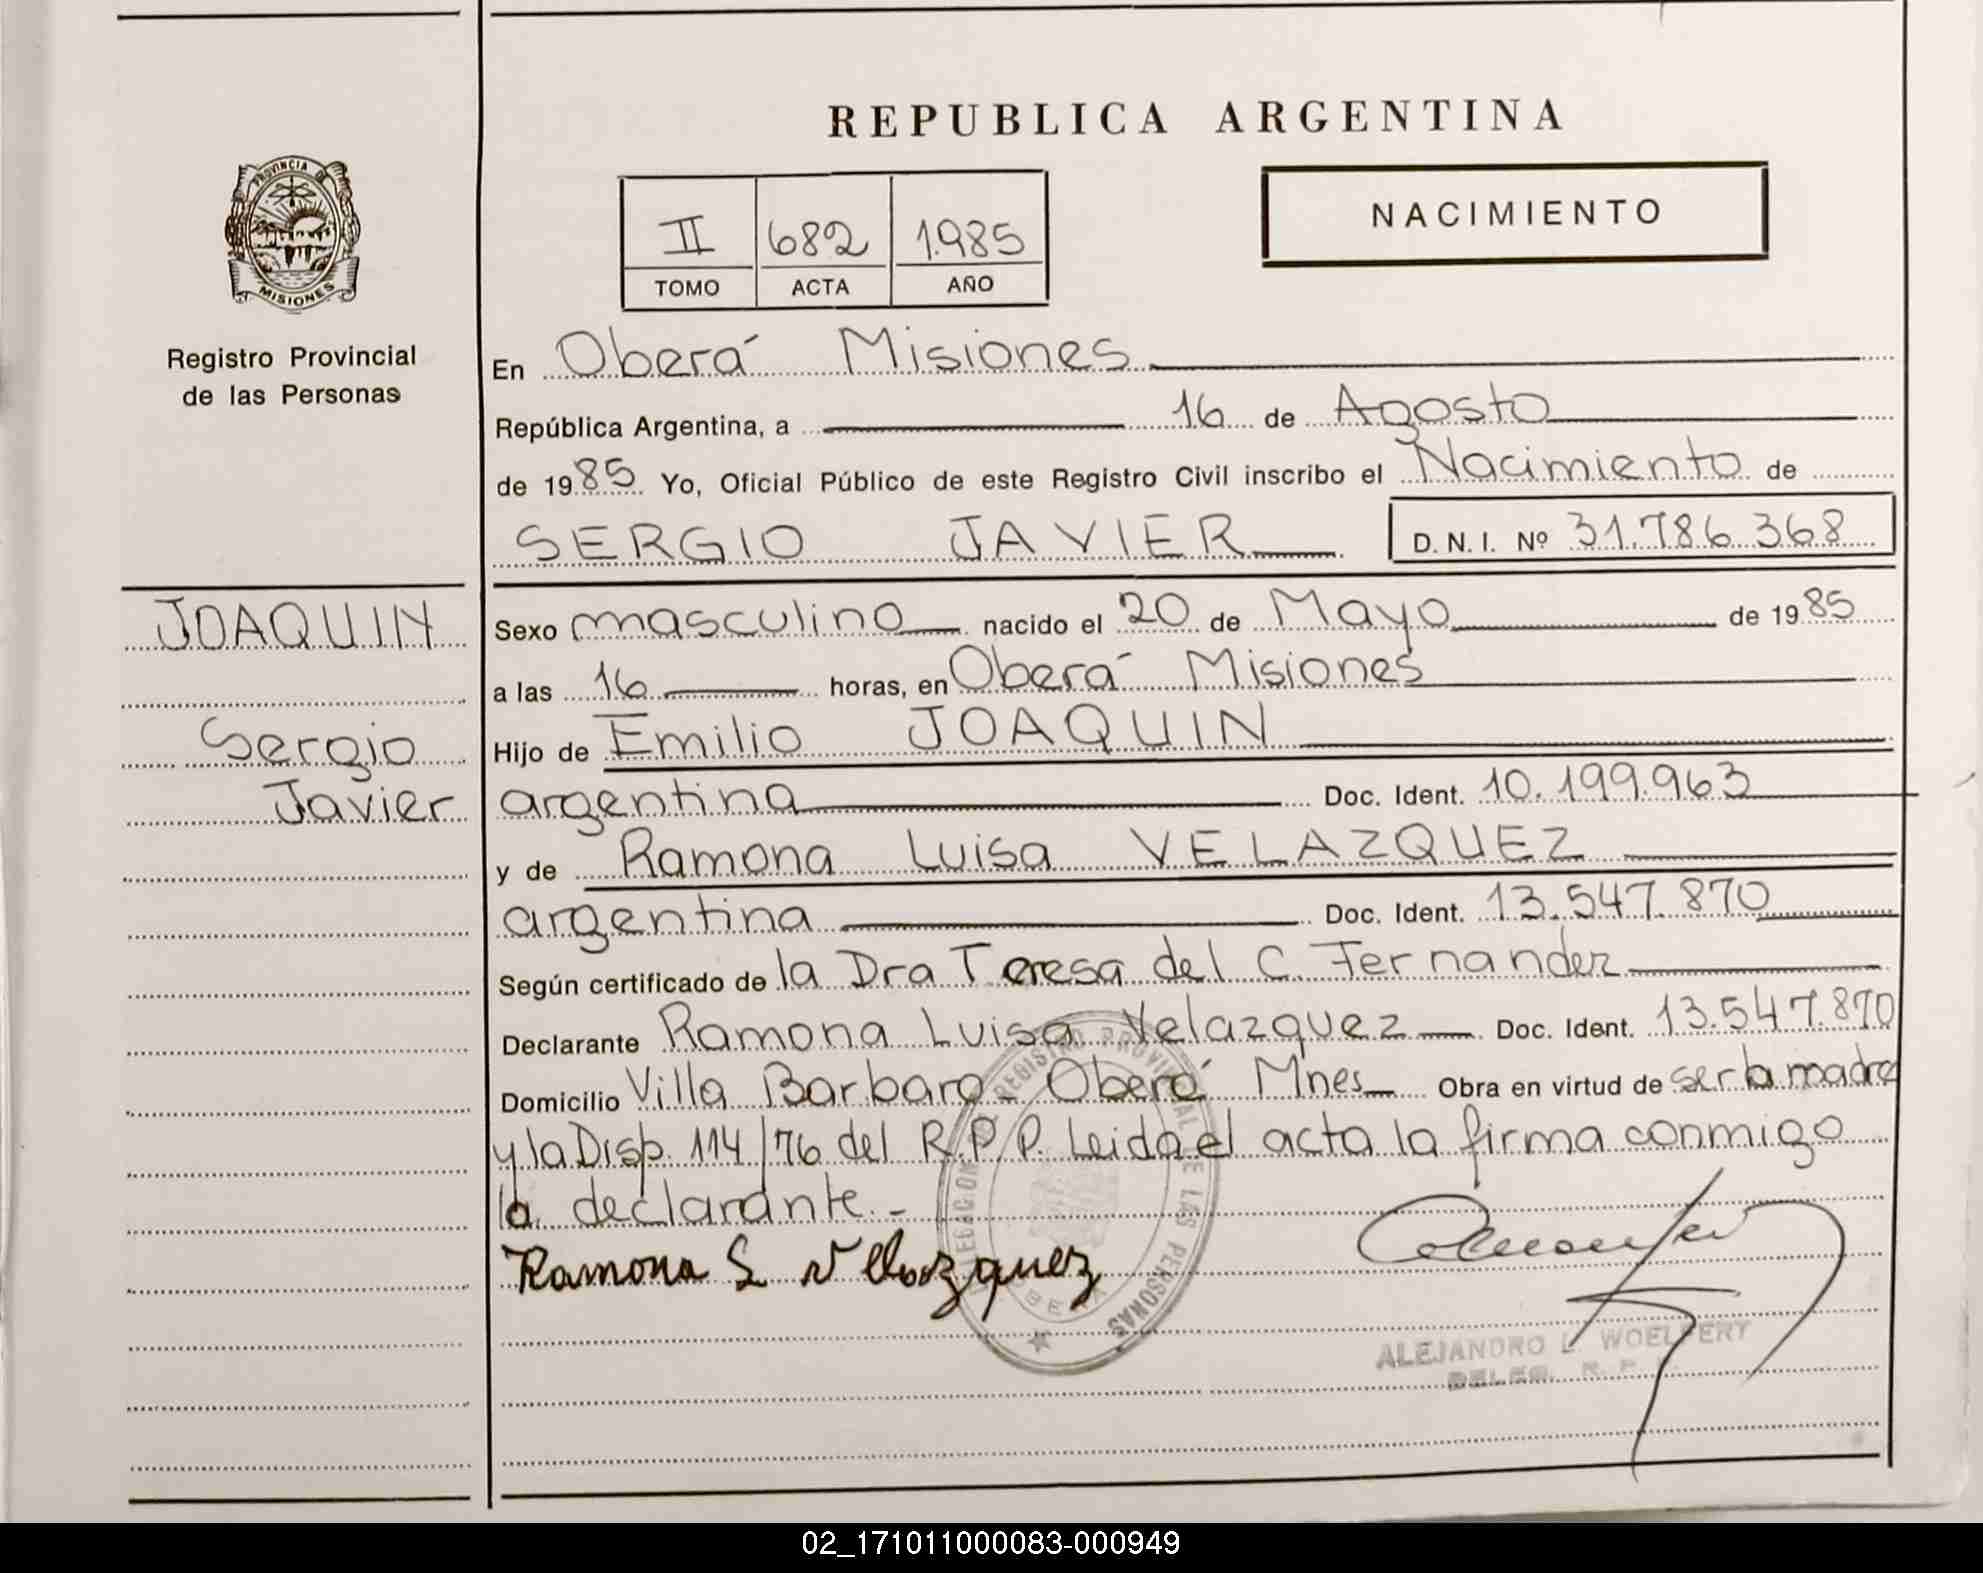 REPUBLICA ARGENTINA
NACIMIENTO
II 682 1.985
TOMO ACTA AÑO
PROVINCIA DE
MISIONES
Registro Provincial
de las Personas
En Oberá Misiones
República Argentina, a 16 de Agosto
de 1985 Yo, Oficial Público de este Registro Civil inscribo el Nacimiento de
SERGIO JAVIER D.N.I. Nº 31.786.368
JOAQUIN
Sergio
Javier
Sexo masculino nacido el 20 de Mayo de 1985
a las 16 horas, en Oberá Misiones
Hijo de Emilio JOAQUIN
argentina Doc. Ident. 10.199.963
y de Ramona Luisa VELAZQUEZ
argentina Doc. Ident. 13.547.870
Según certificado de la Dra Teresa del C. Fernandez
Declarante Ramona Luisa Velazquez Doc. Ident. 13.547.870
Domicilio Villa Barbaro- Oberá Mnes Obra en virtud de ser la madre
y la Disp. 114/76 del R.P.P. Leida el acta la firma conmigo
la declarante.-
Ramona L Vellozquez
REGISTRO PROVINCIAL DE LAS PERSONAS
ALEJANDRO L. WOELFERT
DELEG. R. P.
02_171011000083-000949